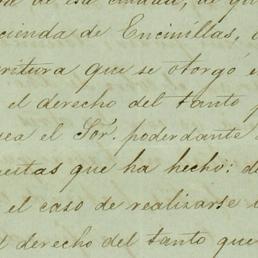 de esa ciudad, de
cienda de Encinillas,
critura que se otorgó
el derecho del tanto
sea el Sor. poderdante
uestas que ha hecho: d
el caso de realizarse
l derecho del tanto que